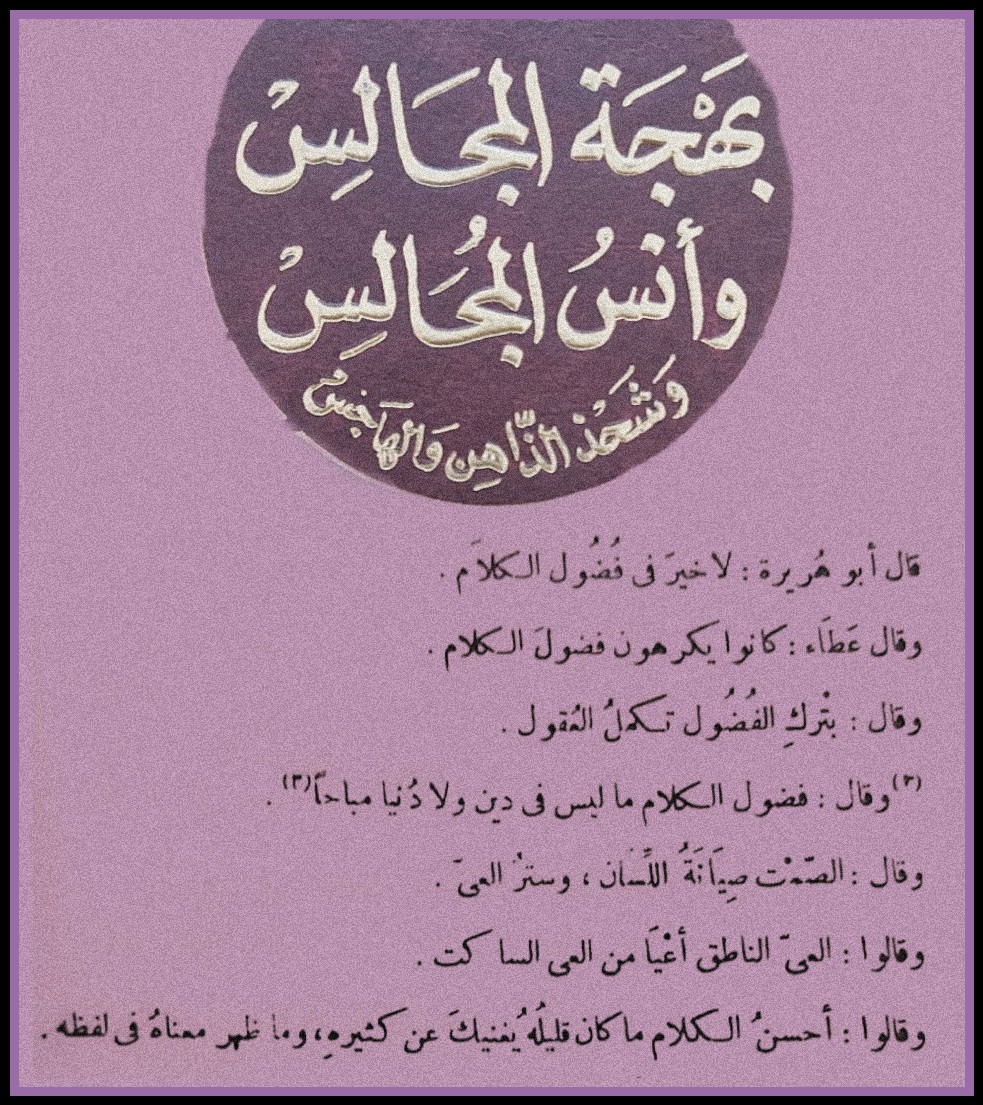 بَهْجَة المجَالِسْ
وأنسُ المجُالِسْ
وَشَحْذ الذَّاهِن وَالهَاجِسْ
قال أبو هُريرة : لا خيرَ فى فُضُول الكلاَم .
وقال عَطَاء : كانوا يكرهون فضولَ الكلام .
وقال : بتْركِ الفُضُول تكملُ العُقول .
(٣) وقال : فضول الكلام ما ليس فى دين ولا دُنيا مباحاً(٣) .
وقال : الصّمْت صِيَانَةُ اللِّسان ، وسترُ العىّ .
وقالوا : العىّ الناطق أعْيَا من العى الساكت .
وقالوا : أحسنُ الكلام ما كان قليلُه يُغنيكَ عن كثيرهِ ، وما ظهر معناهُ فى لفظه .